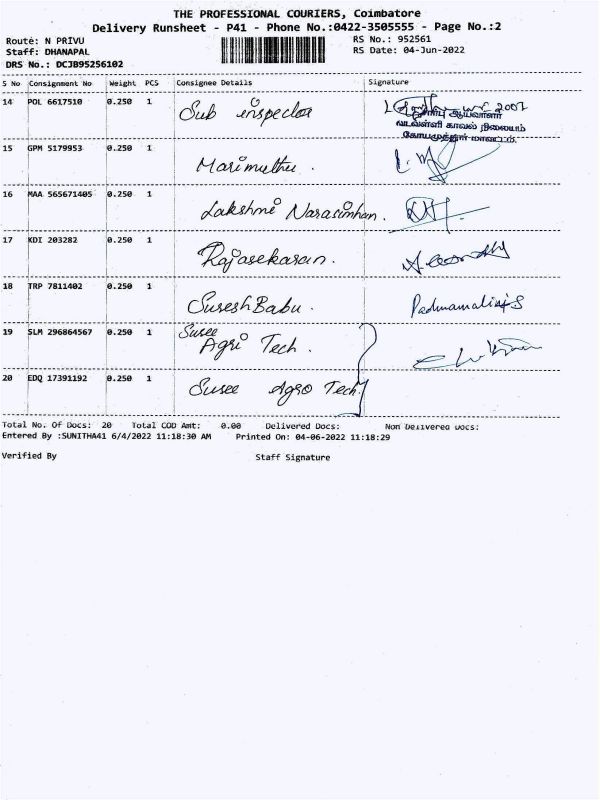 THE PROFESSIONAL COURIERS, Coimbatore
Delivery Runsheet - P41 - Phone No.:0422-3505555 - Page No.:2
Route: N PRIVU RS No.: 952561
Staff: DHANAPAL RS Date: 04-Jun-2022
DRS No.: DCJB95256102
S No Consignment No Weight PCS Consignee Details Signature
14 POL 6617510 0.250 1 Sub inspector 2007
ஆய்வாளர்
வடவள்ளி காவல் நிலையம்
கோயமுத்தூர் மாவட்டம்.
15 GPM 5179953 0.250 1 Marimuthu.
16 MAA 565671405 0.250 1 Lakshmi Narasimhan.
17 KDI 203282 0.250 1 Rajasekaran.
18 TRP 7811402 0.250 1 Suresh Babu. Padmamalini S
19 SLM 296864567 0.250 1 Susee
Agri Tech.
20 EDQ 17391192 0.250 1 Susee Agro Tech
Total No. Of Docs: 20 Total COD Amt: 0.00 Delivered Docs: Non Delivered Docs:
Entered By :SUNITHA41 6/4/2022 11:18:30 AM Printed On: 04-06-2022 11:18:29
Verified By Staff Signature